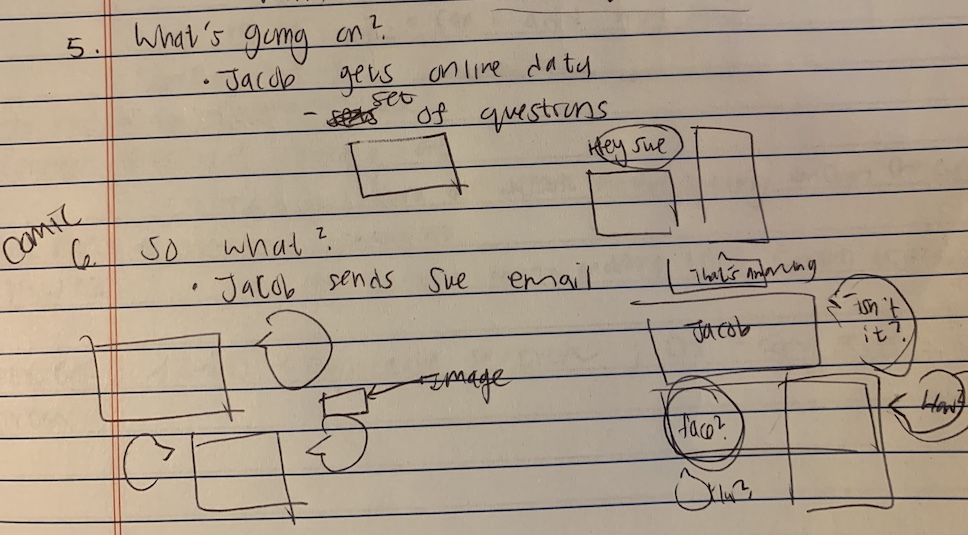 5. What's going on?
• Jacob gets online data
- set of questions
Hey Sue
comic
6. So what?
• Jacob sends Sue email
That's amazing
Jacob
isn't it?
Image
face?
How?